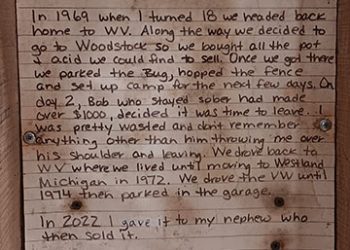 In 1969 when I turned 18 we headed back
home to WV. Along the way we decided to
go to Woodstock so we bought all the pot
& acid we could find to sell. Once we got there
we parked the Bug, hopped the fence
and set up camp for the next few days. On
day 2, Bob who stayed sober had made
over $1000, decided it was time to leave. I
was pretty wasted and don't remember
anything other than him throwing me over
his shoulder and leaving. We drove back to
WV where we lived until moving to Westland
Michigan in 1972. We drove the VW until
1974 then parked in the garage.
In 2022 I gave it to my nephew who
then sold it.